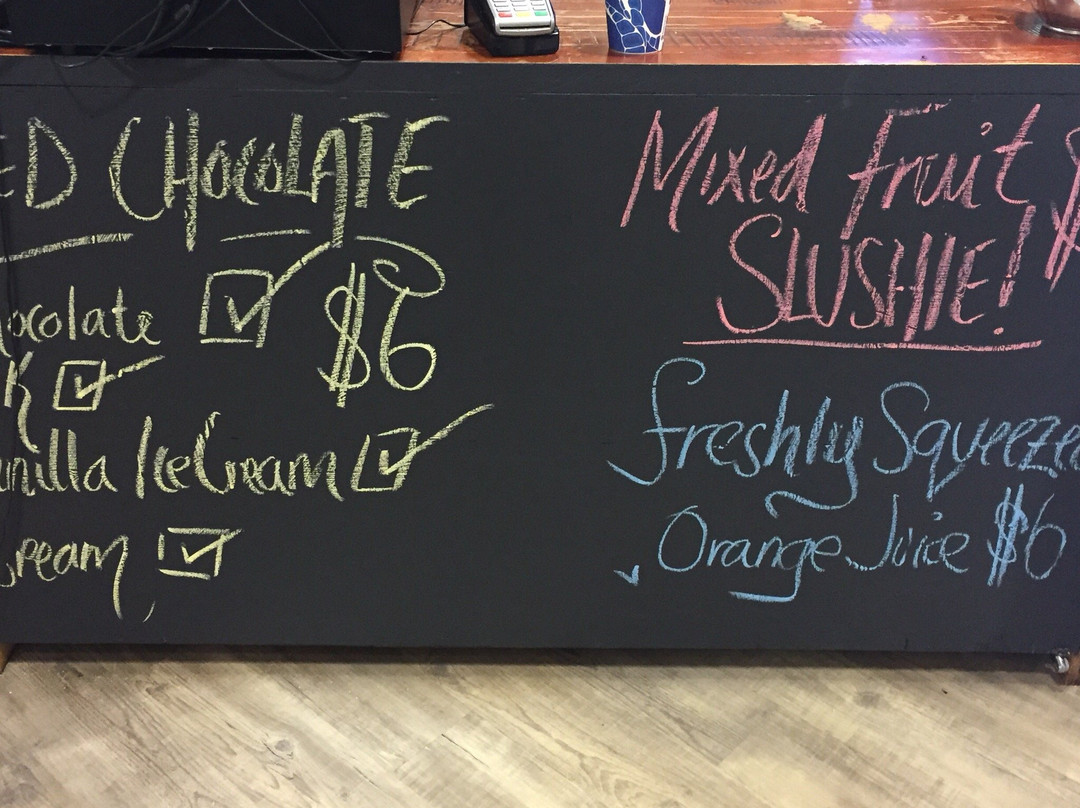 ED CHOCOLATE
ocolate $6
K
anilla IceCream
ream
Mixed Fruit $
SLUSHIE!
freshly Squeeze
Orange Juice $6